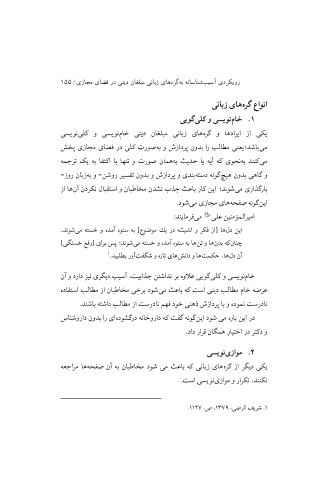 رویکردی آسیب‌شناسانه به‌گره‌های زبانی مبلغان دینی در فضای مجازی / ۱۵۵
انواع گره‌های زبانی
۱. خام‌نویسی و کلی‌گویی
یکی از ایرادها و گره‌های زبانی مبلغان دینی خام‌نویسی و کلی‌نویسی
می‌باشد؛ یعنی مطالب را بدون پردازش و به‌صورت کلی در فضای مجازی پخش
می‌کنند به‌نحوی که آیه یا حدیث به‌همان صورت و تنها با اکتفا به یک ترجمه
و گاهی بدون هیچ‌گونه دسته‌بندی و پردازش و بدون تفسیر روشن- و به‌زبان روز-
بارگذاری می‌شوند؛ این کار باعث جذب نشدن مخاطبان و استقبال نکردن آن‌ها از
این‌گونه صفحه‌های مجازی می‌شود.
امیرالمؤمنین علی می‌فرمایند:
این دل‌ها [از فکر و اندیشه در یك موضوع] به ستوه آمده و خسته می‌شوند،
چنان‌که بدن‌ها و تن‌ها به ستوه آمده و خسته می‌شوند؛ پس برای [رفع خستگی]
آن دل‌ها، حکمت‌ها و دانش‌های تازه و شگفت‌آور بطلبید.۱
خام‌نویسی و کلی‌گویی علاوه بر نداشتن جذابیت، آسیب دیگری نیز دارد و آن
عرضه خام مطالب دینی است که باعث می‌شود برخی مخاطبان از مطالب استفاده
نادرست نموده و با پردازش ذهنی خود فهم نادرست از مطالب داشته باشند.
در این باره می شود این‌گونه گفت که داروخانه درگشوده‌ای را بدون داروشناس
و دکتر در اختیار همگان قرار داد.
۲. موازی‌نویسی
یکی دیگر از گره‌های زبانی که باعث می شود مخاطبان به آن صفحه‌ها مراجعه
نکنند، تکرار و موازی‌نویسی است.
۱. شریف الرضی، ۱۳۷۹، ص. ۱۱۲۷.